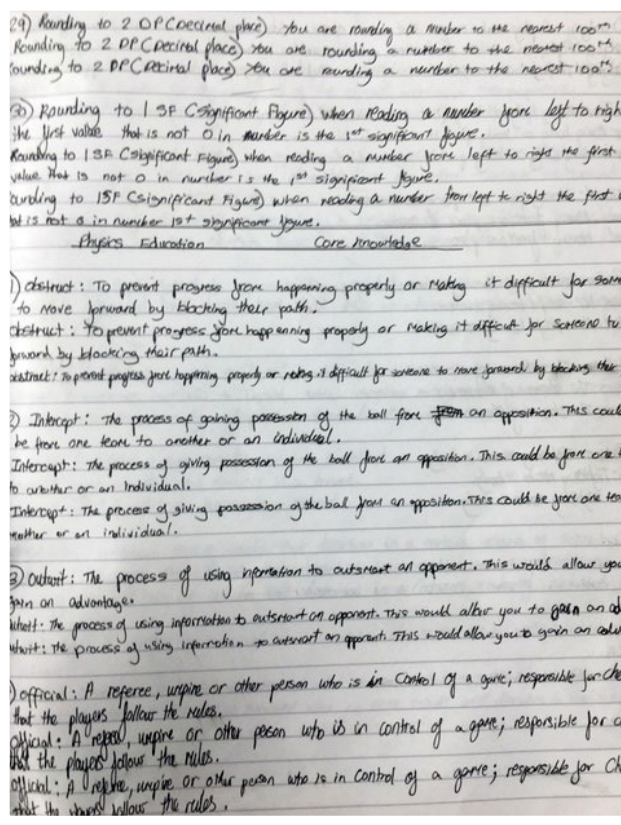 29) Rounding to 2 DP (Decimal place) You are rounding a number to the nearest 100th
Rounding to 2 DP (Decimal place) You are rounding a number to the nearest 100th
ounding to 2 DP (Decimal place) You are rounding a number to the nearest 100th
30) Rounding to 1 SF (Significant Figure) when reading a number from left to righ
the first value that is not 0 in number is the 1st significant figure.
Rounding to 1 SF (Significant Figure) when reading a number from left to right the first
value that is not 0 in number is the 1st significant figure.
ounding to 1SF (significant Figure) when reading a number from left to right the first
at is not 0 in number 1st significant figure.
Physics Education Core knowledge
1) obstruct : To prevent progress from happenning properly or Making it difficult for som
to move forward by blocking their path.
obstruct : To prevent progress from happenning properly or making it difficult for someone to
forward by blocking their path.
obstruct : To prevent progress from happening properly or making it difficult for someone to move forward by blocking their
2) Intercept : The process of gaining possession of the ball from an opposition. This coul
be from one team to another or an individual.
Intercept : The process of giving possession of the ball from an opposition. This could be from one
to another or an Individual.
Intercept : The process of giving possession of the ball from an opposition. This could be from one tea
nother or an individual.
3) outwit : The process of using information to outsmart an opponent. This would allow you
gain an advantage.
: The process of using information to outsmart an opponent. This would allow you to gain an ad
utwit : The process of using information to outsmart an opponent. This would allow you to gain an adv
) official : A referee, umpire or other person who is in control of a game; responsible for che
that the players follow the rules.
official : A referee, umpire or other person who is in control of a game; responsible for c
that the players follow the rules.
official : A referee, umpire or other person who is in control of a game; responsible for ch
that the players follow the rules.